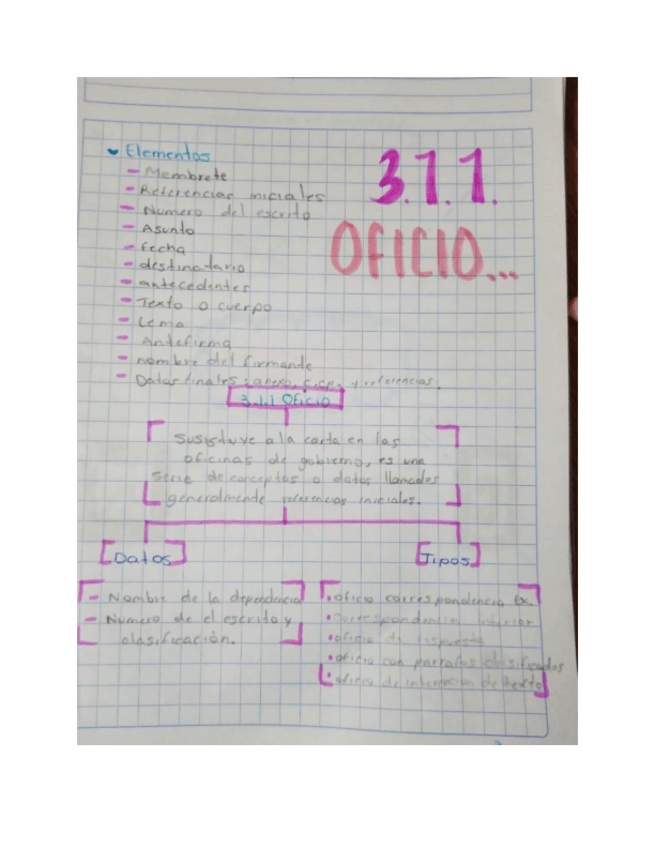 Elementos
- Membrete
- Referencias iniciales
- Numero del escrito
- Asunto
- fecha
- destinatario
- antecedentes
- Texto o cuerpo
- Lema
- Antefirma
- nombre del firmante
- Datos finales: anexo, c.c.p., y referencias.
3.1.1.
OFICIO...
3.1.1 Oficio
Sustituye a la carta en las
oficinas de gobierno, es una
serie de conceptos o datos llamados
generalmente referencias iniciales.
Datos
- Nombre de la dependencia
- Numero de el escrito y
clasificación.
Tipos
• oficio correspondencia Ex.
• correspondencia interior
• oficio de respuesta
• oficio con parrafos clasificados
• oficio de de texto